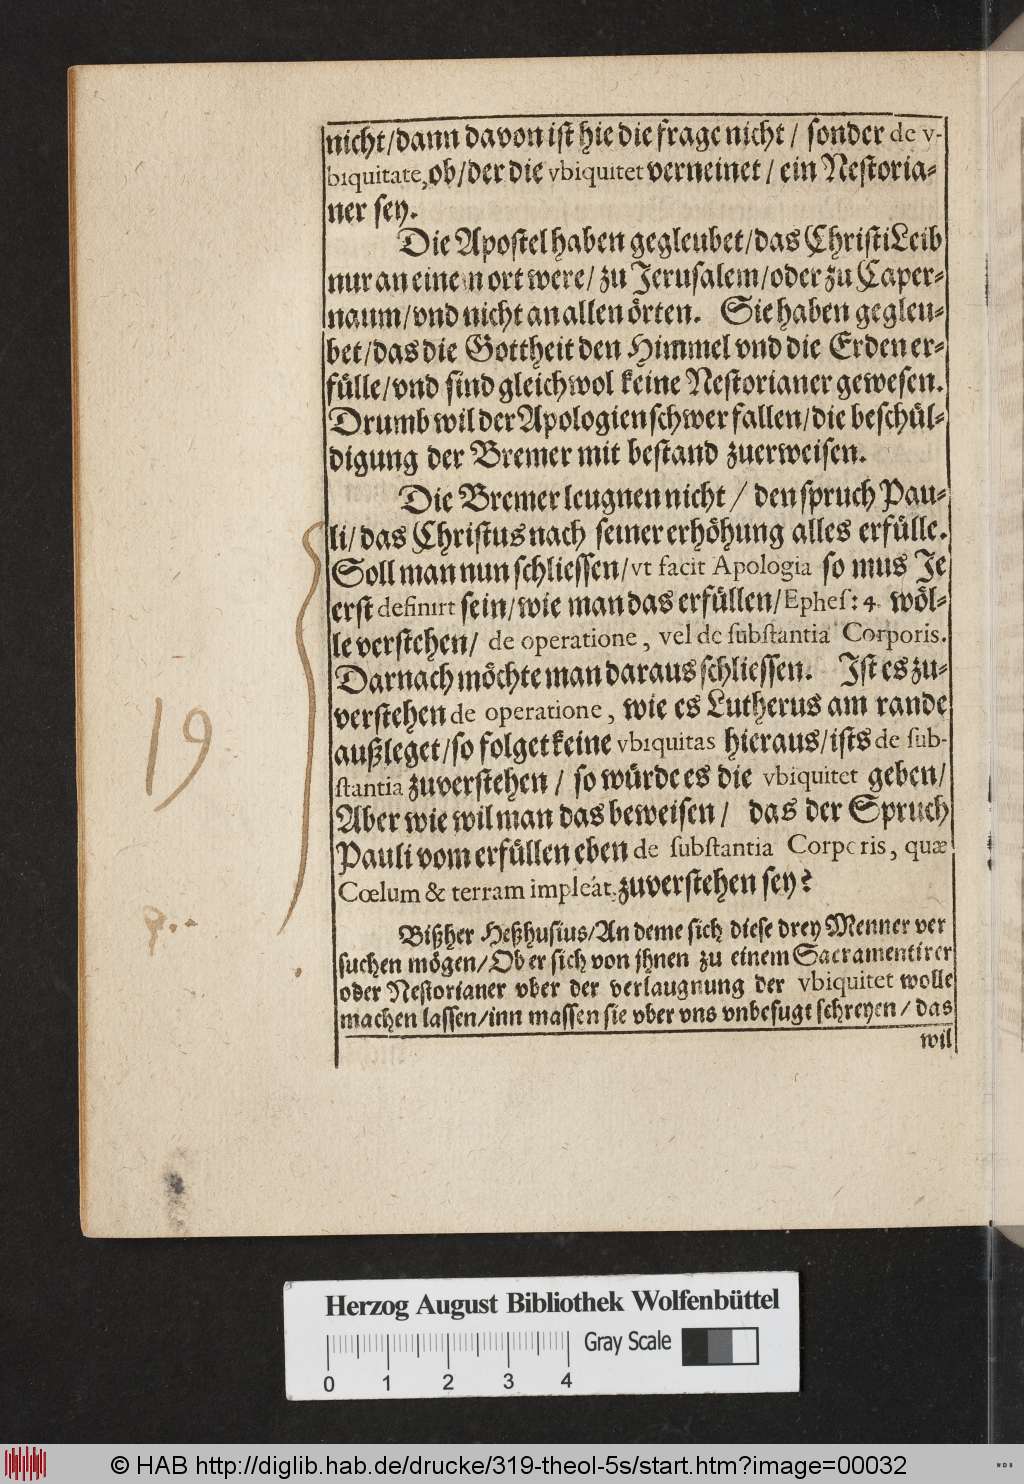 nicht/dann davon ist hie die frage nicht/ sonder de v-
biquitate, ob/der die vbiquitet verneinet/ ein Nestoria-
ner sey.
Die Apostel haben gegleubet/das Christi Leib
nur an einem ort were/ zu Jerusalem/oder zu Caper-
naum/vnd nicht an allen örten. Sie haben gegleu-
bet/das die Gottheit den Himmel vnd die Erden er-
fülle/vnd sind gleichwol keine Nestorianer gewesen.
Drumb wil der Apologien schwer fallen/die beschül-
digung der Bremer mit bestand zuerweisen.
Die Bremer leugnen nicht/ den spruch Pau-
li/das Christus nach seiner erhöhung alles erfülle.
Soll man nun schliessen/vt facit Apologia so mus Je
erst definirt sein/wie man das erfüllen/Ephes: 4. wöl-
le verstehen/ de operatione, vel de substantia Corporis.
Darnach möchte man daraus schliessen. Ist es zu-
verstehen de operatione, wie es Lutherus am rande
außleget/so folget keine vbiquitas hieraus/ists de sub-
stantia zuverstehen/ so würde es die vbiquitet geben/
Aber wie wil man das beweisen/ das der Spruch
Pauli vom erfüllen eben de substantia Corporis, quæ
Cœlum & terram impleát, zuverstehen sey?
19
Bißher Heßhusius/An deme sich diese drey Menner ver
suchen mögen/Ob er sich von jhnen zu einem Sacramentirer
oder Nestorianer vber der verlaugnung der vbiquitet wolle
machen lassen/inn massen sie vber vns vnbefugt schreyen/ das
wil
Herzog August Bibliothek Wolfenbüttel
Gray Scale
0 1 2 3 4
© HAB http://diglib.hab.de/drucke/319-theol-5s/start.htm?image=00032